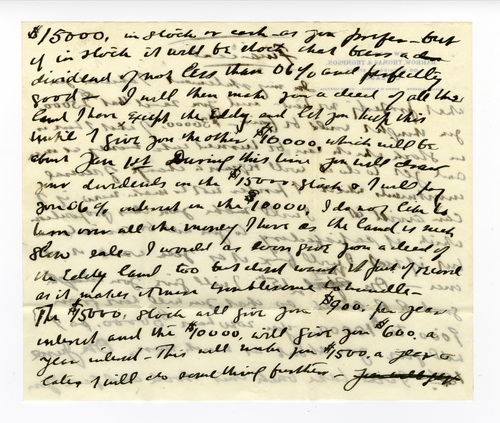 $15000, in stock or cash - as you prefer - but
if in stock it will be stock that bears a
dividend of not less than 06% and perfectly
good - I will then make you a deed of all the
land I have except the Eddy and let you keep this
until I give you the other $10000, which will be
about Jan 1st During this time you will draw
your dividends in the $15000 stock & I will pay
you 06% interest in the $10000, I do not like to
turn over all the money I have as the land is such
slow sale. I would as soon give you a deed of
the Eddy land too but dont want it put of record
as it makes it more troublesome to handle -
The $15000, stock will give you $900, per year
interest and the $10000, will give you $600, a
year interest - This will make you $1500, a year &
later I will do something further -